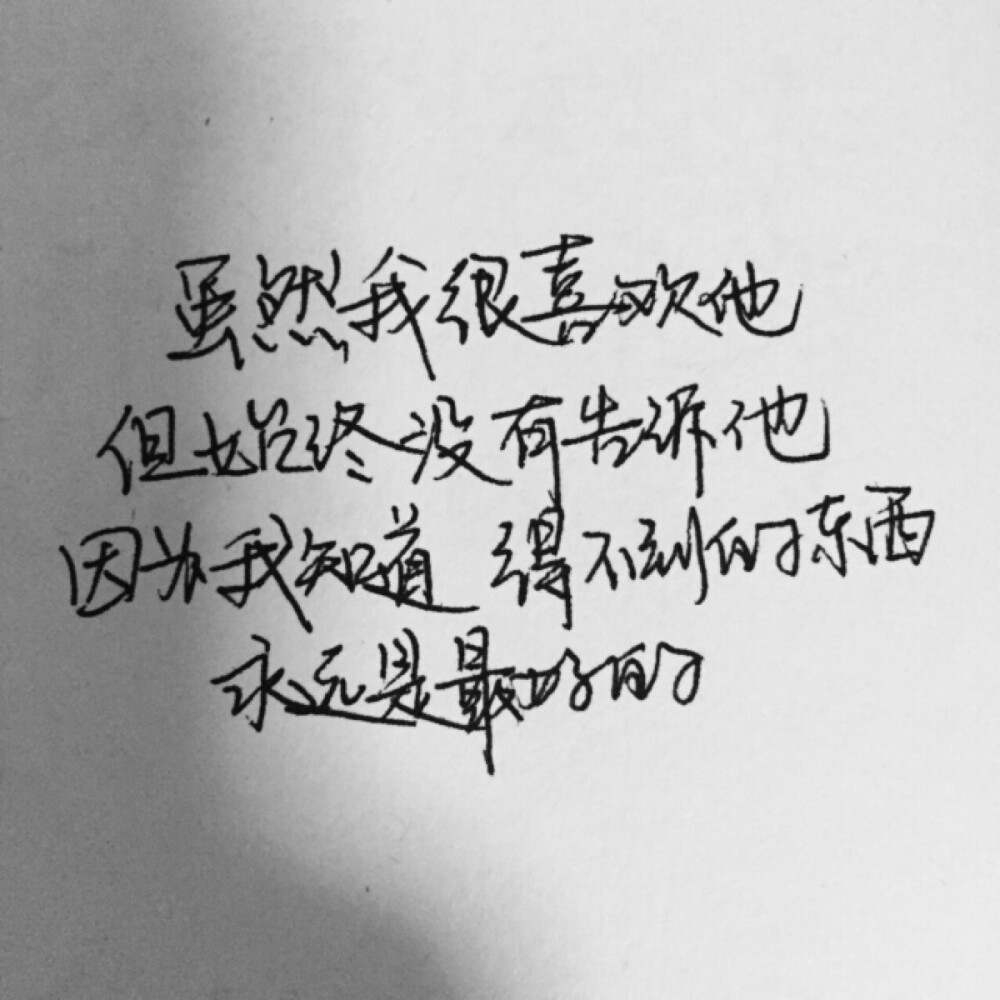 虽然我很喜欢他
但始终没有告诉他
因为我知道 得不到的东西
永远是最好的